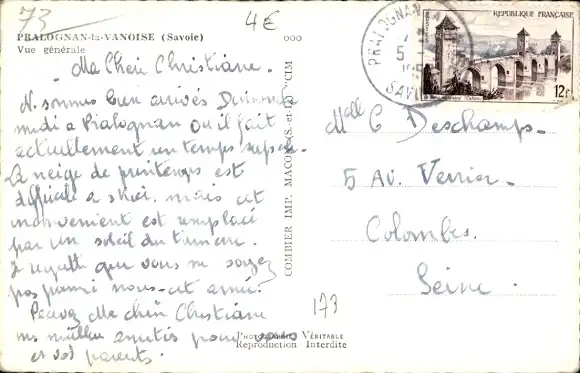 73
4€
PRALOGNAN-la-VANOISE (Savoie)
Vue générale
ooo
Ma Chèr Christiane.
N. sommes bien arrivés Dimanche
midi a Pralognan ou il fait
actuellement un temps
La neige de printemps est
difficile a skier, mais cet
inconvenient est remplacé
par un soleil du
Je regrette que vous ne soyez
pas parmi nous cet année.
Recevez Ma chèr Christiane
mes meilleures amitiés pour
et vos parents.
COMBIER IMP. MACON (S.-et-L.) "CIM
PRALOGNAN
5
SAVOIE
REPUBLIQUE FRANÇAISE
12f
Mlle C Deschamps-
5 Av. Verrier-
Colombes.
Seine.
173
PHOTOGRAPHIE VÉRITABLE
Reproduction Interdite